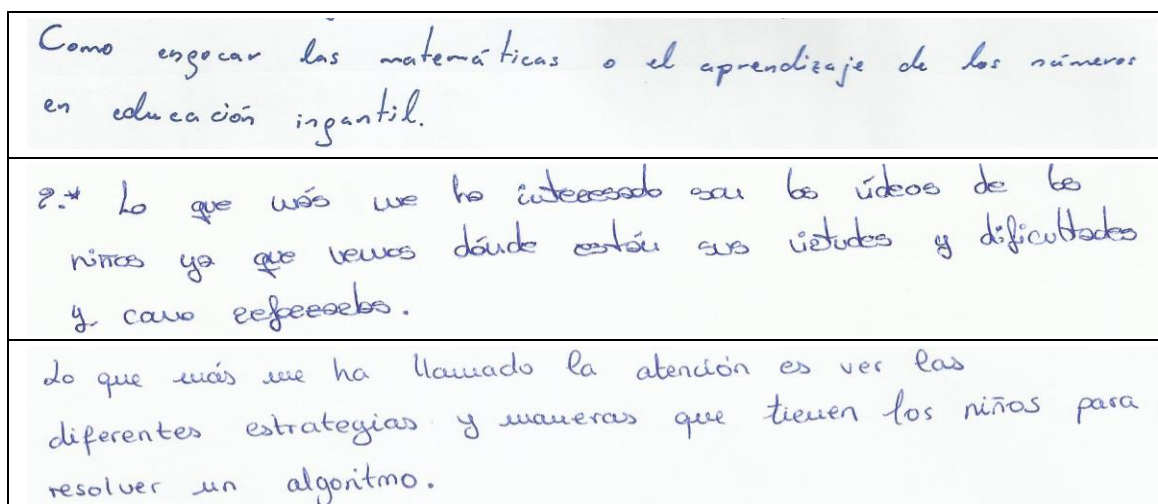 Como engocar las matemáticas o el aprendizaje de los números
en educación ingantil.
2.* Lo que más me ha interesado son los vídeos de los
niños ya que vemos dónde están sus virtudes y dificultades
y como
Lo que más me ha llamado la atención es ver las
diferentes estrategias y maneras que tienen los niños para
resolver un algoritmo.